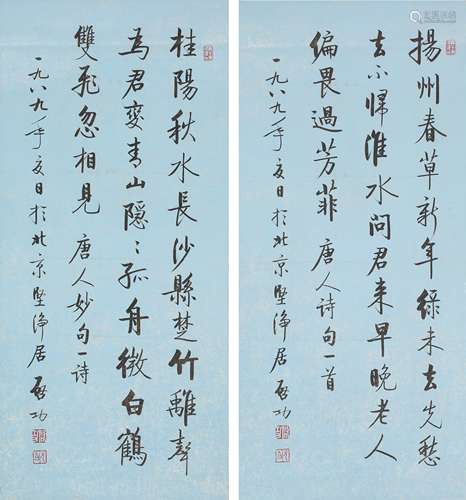 揚州春草新年綠未去先愁
去不歸淮水問君来早晚老人
偏畏過芳菲 唐人诗句一首
一九八九年夏日於北京堅淨居 啓功
桂陽秋水長沙縣楚竹離聲
為君變青山隱〻孤舟微白鶴
雙飛忽相見 唐人妙句一诗
一九八九年夏日於北京堅淨居 啓功